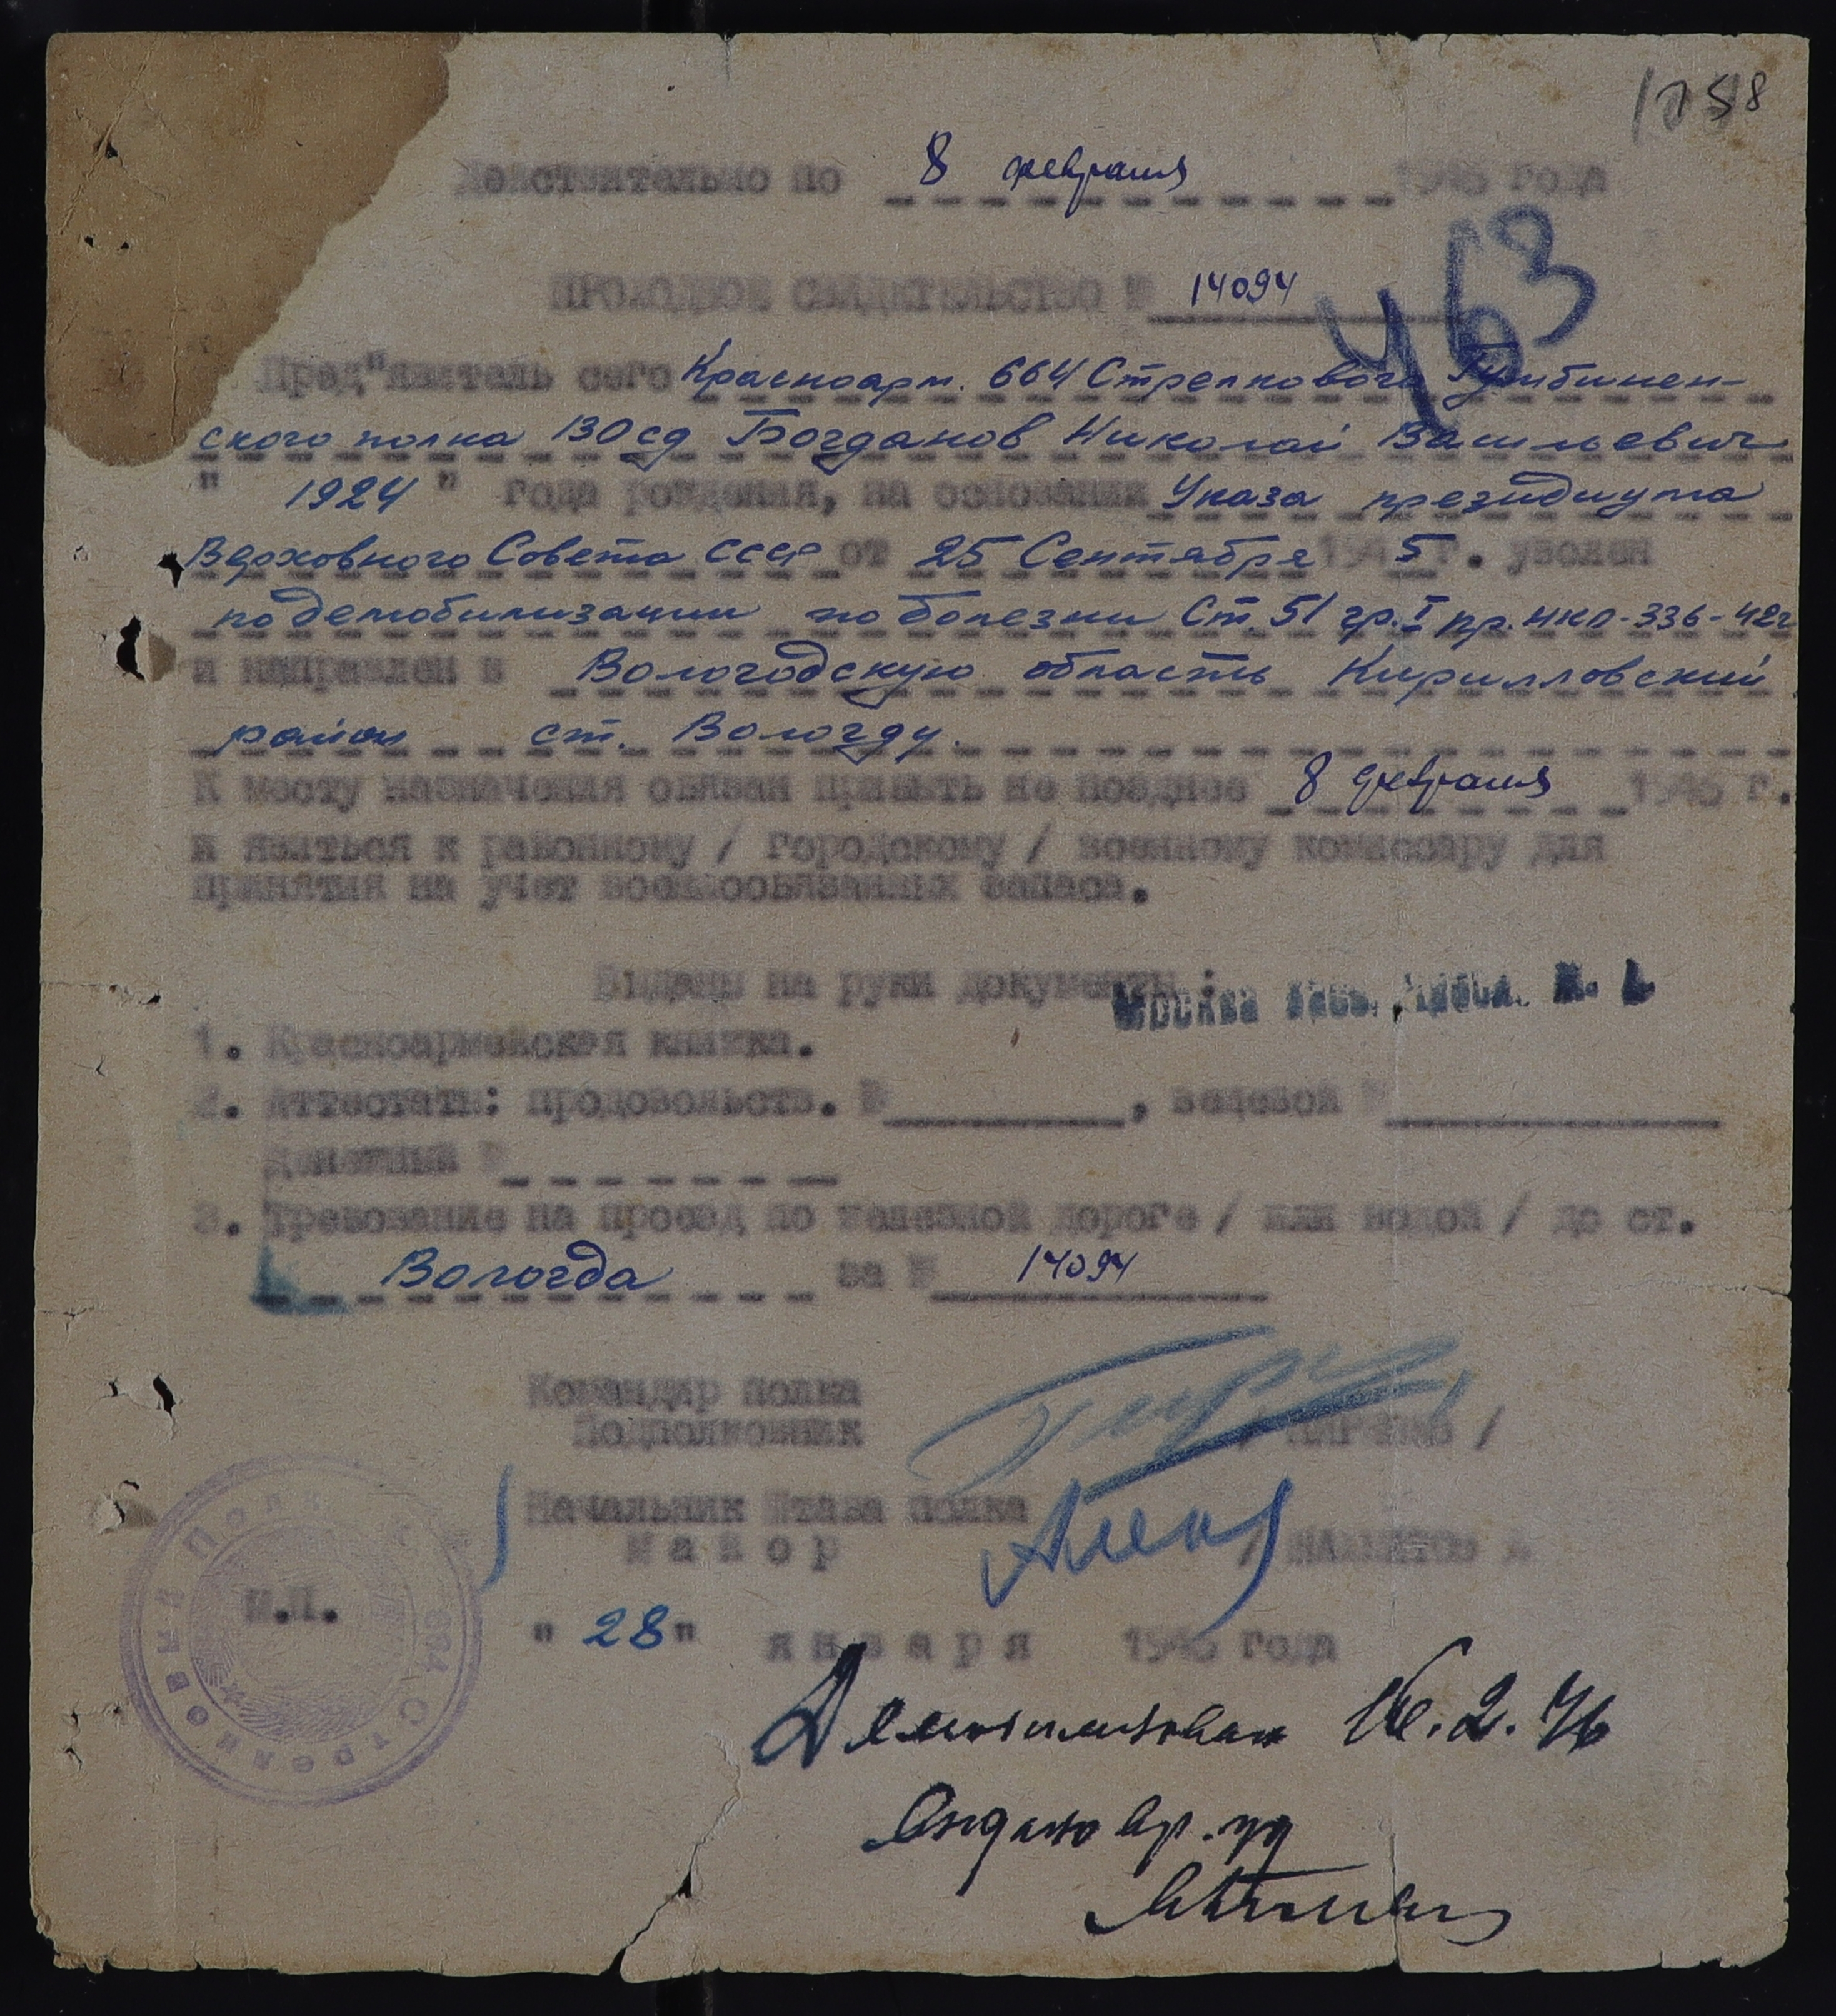 1058
Действительно по 8 февраля 1946 года
463
ПРОХОДНОЕ СВИДЕТЕЛЬСТВО № 14094
Пред"явитель сего Красноарм. 664 Стрелкового Гумбинен-
ского полка 130 сд Богданов Николай Васильевич
" 1924 " года рождения, на основании Указа президиума
Верховного Совета СССР от 25 Сентября 1945 г. уволен
по демобилизации по болезни Ст. 51 гр. I пр. НКО-336-42г
и направлен в Вологодскую область Кирилловский
район ст. Вологду.
К месту назначения обязан прибыть не позднее 8 февраля 1946 г.
и явиться к районному / городскому / военному комиссару для
принятия на учет военнообязанных запаса.
Выданы на руки документы :
Москва
1. Красноармейская книжка.
2. Аттестаты: продовольств. № , вещевой №
Денежный №
3. Требование на проезд по железной дороге / или водой / до ст.
Вологда за № 14094
Командир полка
Подполковник
Начальник Штаба полка
Майор
М.П.
664 Стрелковый Полк
" 28 " января 1946 года
Демобилизован 16.2.46
Выдано вр. уд